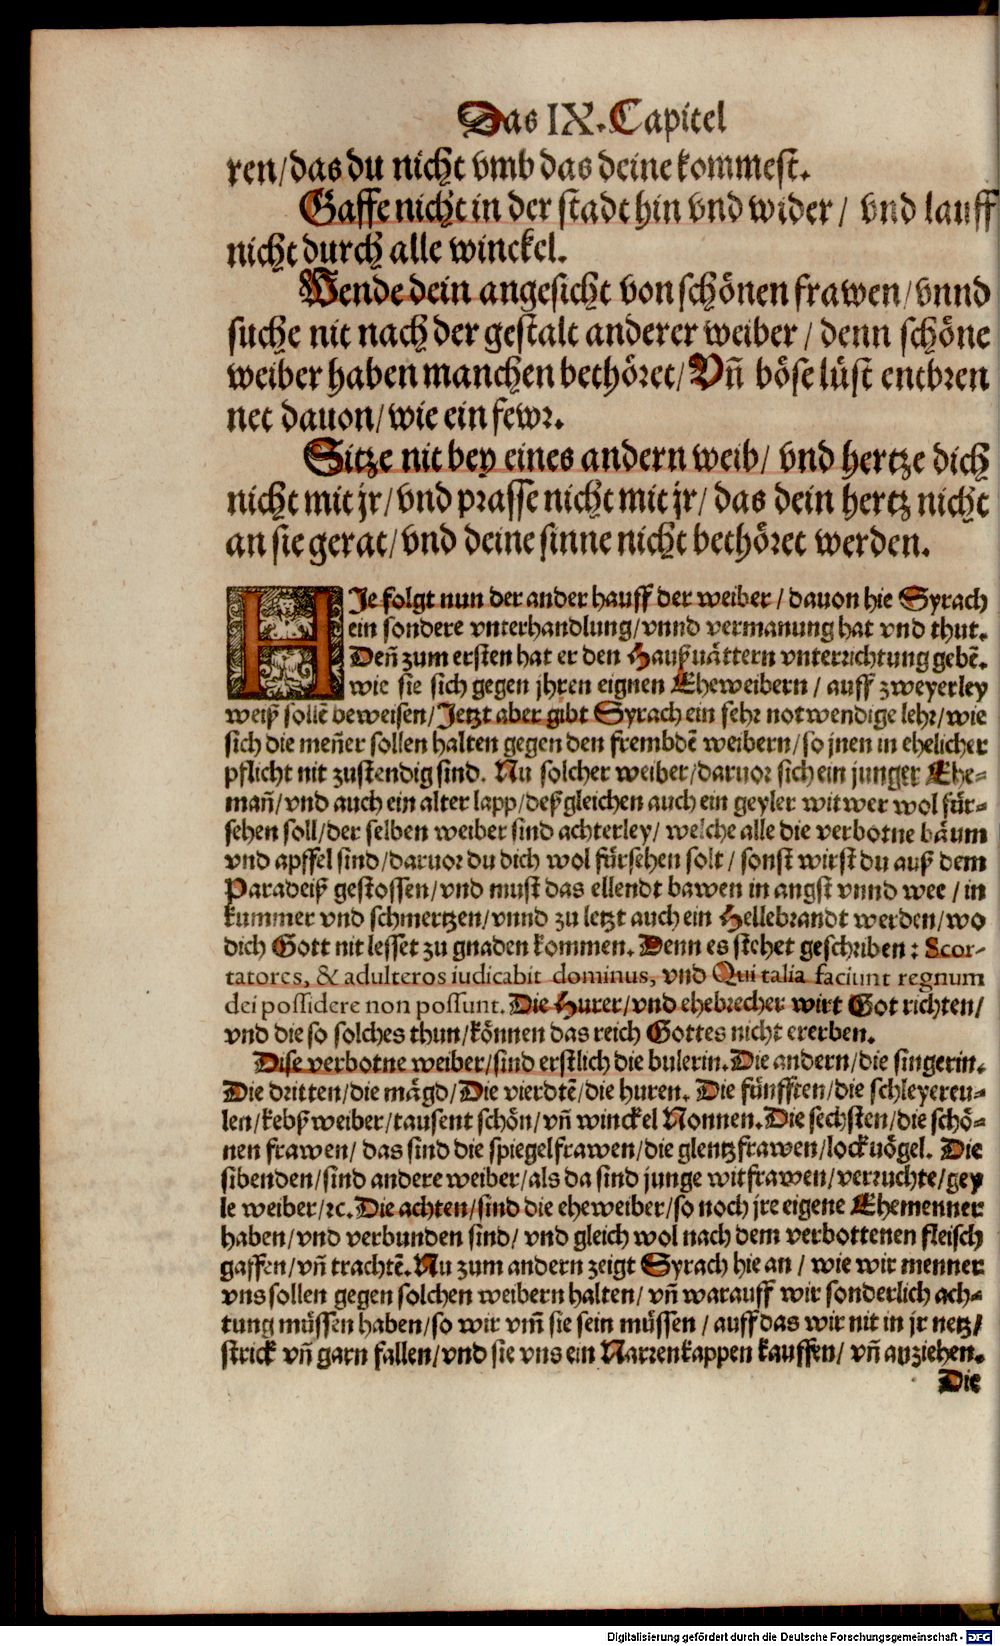 Das IX. Capitel
ren/das du nicht vmb das deine kommest.
Gaffe nicht in der stadt hin vnd wider / vnd lauff
nicht durch alle winckel.
Wende dein angesicht von schönen frawen/vnnd
suche nit nach der gestalt anderer weiber / denn schöne
weiber haben manchen bethöret/Vn̄ böse lüst entbren
net dauon/wie ein fewr.
Sitze nit bey eines andern weib/ vnd hertze dich
nicht mit jr/vnd prasse nicht mit jr/ das dein hertz nicht
an sie gerat/vnd deine sinne nicht bethöret werden.
HJe folgt nun der ander hauff der weiber / dauon hie Syrach
ein sondere vnterhandlung/vnnd vermanung hat vnd thut.
Den̄ zum ersten hat er den Haußuättern vnterrichtung gebē.
wie sie sich gegen jhren eignen Eheweibern / auff zweyerley
weiß sollē beweisen/Jetzt aber gibt Syrach ein sehr notwendige lehr/wie
sich die men̄er sollen halten gegen den frembdē weibern/so jnen in ehelicher
pflicht nit zustendig sind. Nu solcher weiber/daruor sich ein junger Ehe-
man̄/vnd auch ein alter lapp/deßgleichen auch ein geyler witwer wol für-
sehen soll/der selben weiber sind achterley/ welche alle die verbotne bäum
vnd apffel sind/daruor du dich wol fürsehen solt / sonst wirst du auß dem
Paradeiß gestossen/vnd must das ellendt bawen in angst vnnd wee / in
kummer vnd schmertzen/vnnd zu letzt auch ein Hellebrandt werden/wo
dich Gott nit lesset zu gnaden kommen. Denn es stehet geschriben: Scor-
tatores, & adulteros iudicabit dominus, vnd Qui talia faciunt regnum
dei possidere non possunt. Die Hurer/vnd ehebrecher wirt Got richten/
vnd die so solches thun/können das reich Gottes nicht ererben.
Dise verbotne weiber/sind erstlich die bulerin. Die andern/die singerin.
Die dritten/die mägd/Die vierdtē/die huren. Die fünfften/die schleyereu-
len/kebßweiber/tausent schön/vn̄ winckel Nonnen. Die sechsten/die schö-
nen frawen/ das sind die spiegelfrawen/die glentzfrawen/lockuögel. Die
sibenden/sind andere weiber/als da sind junge witfrawen/verruchte/gey
le weiber/ꝛc. Die achten/sind die eheweiber/so noch jre eigene Ehemenner
haben/vnd verbunden sind/ vnd gleich wol nach dem verbottenen fleisch
gaffen/vn̄ trachtē. Nu zum andern zeigt Syrach hie an / wie wir menner
vns sollen gegen solchen weibern halten/ vn̄ warauff wir sonderlich ach-
tung müssen haben/so wir vm̄ sie sein müssen / auff das wir nit in jr netz/
strick vn̄ garn fallen/vnd sie vns ein Narrenkappen kauffen/ vn̄ anziehen.
Die
Digitalisierung gefördert durch die Deutsche Forschungsgemeinschaft - DFG